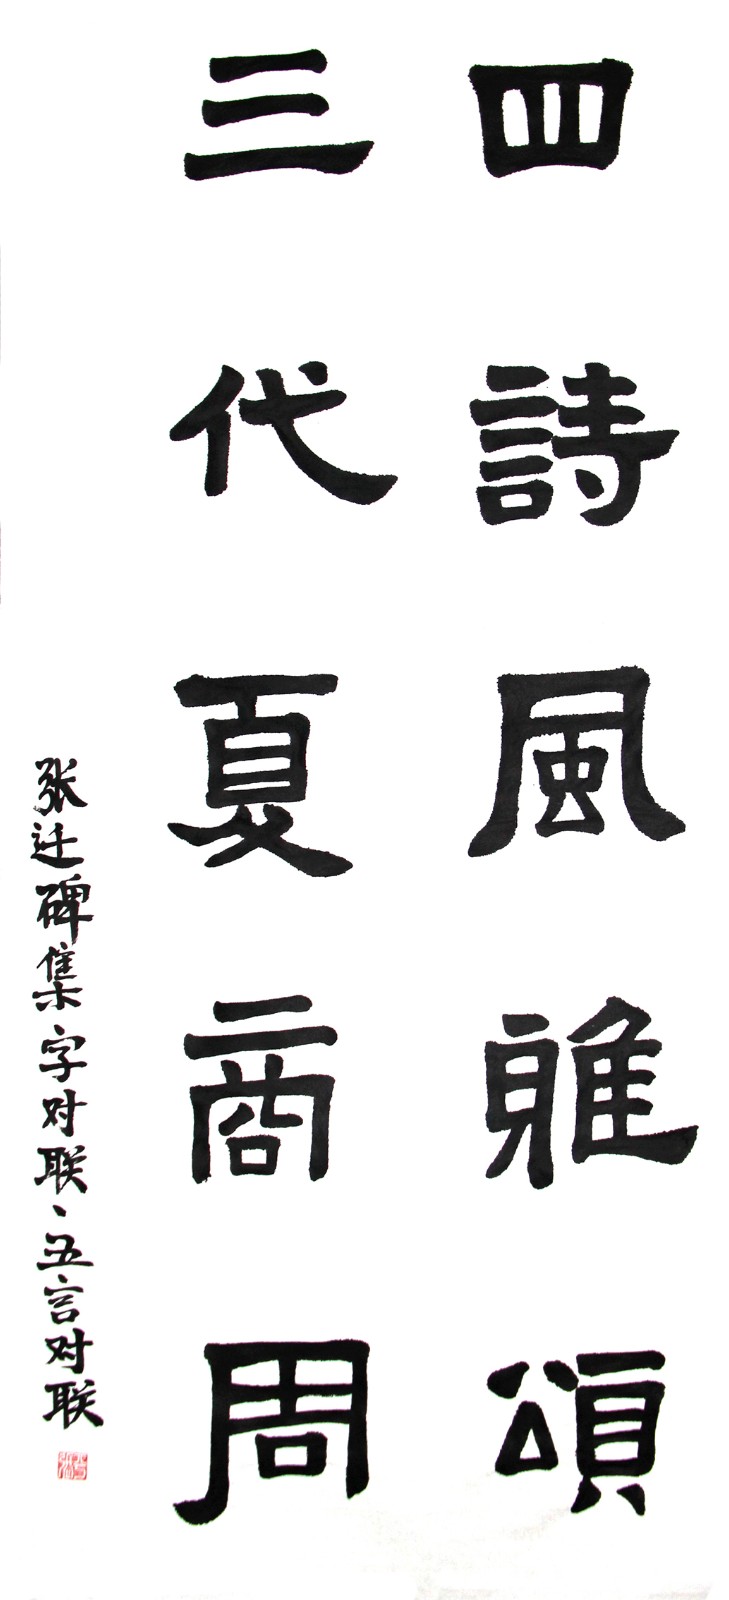 四詩風雅頌
三代夏商周
张迁碑集字对联、五言对联